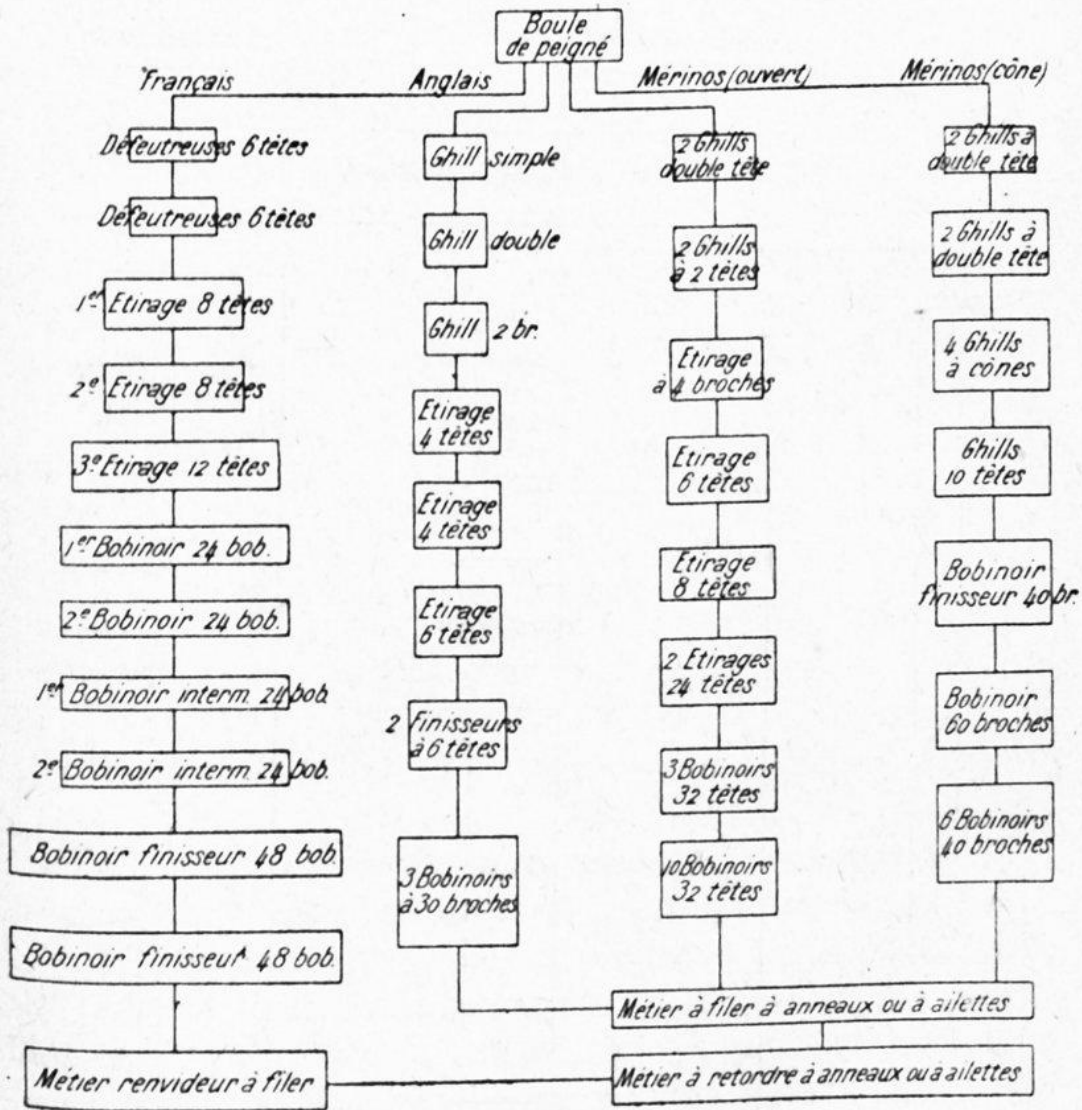 Boule
de peigné
Français
Défeutreuses 6 têtes
Défeutreuses 6 têtes
1er Etirage 8 têtes
2e Etirage 8 têtes
3e Etirage 12 têtes
1er Bobinoir 24 bob.
2e Bobinoir 24 bob.
1er Bobinoir interm. 24 bob.
2e Bobinoir interm. 24 bob.
Bobinoir finisseur 48 bob.
Bobinoir finisseur 48 bob.
Métier renvideur à filer
Anglais
Ghill simple
Ghill double
Ghill 2 br.
Etirage
4 têtes
Etirage
4 têtes
Etirage
6 têtes
2 Finisseurs
à 6 têtes
3 Bobinoirs
à 30 broches
Mérinos (ouvert)
2 Ghills
double tête
2 Ghills
à 2 têtes
Etirage
à 4 broches
Etirage
6 têtes
Etirage
8 têtes
2 Etirages
24 têtes
3 Bobinoirs
32 têtes
10 Bobinoirs
32 têtes
Mérinos (cône)
2 Ghills à
double tête
2 Ghills à
double tête
4 Ghills
à cônes
Ghills
10 têtes
Bobinoir
finisseur 40 br.
Bobinoir
60 broches
6 Bobinoirs
40 broches
Métier à filer à anneaux ou à ailettes
Métier à retordre à anneaux ou à ailettes